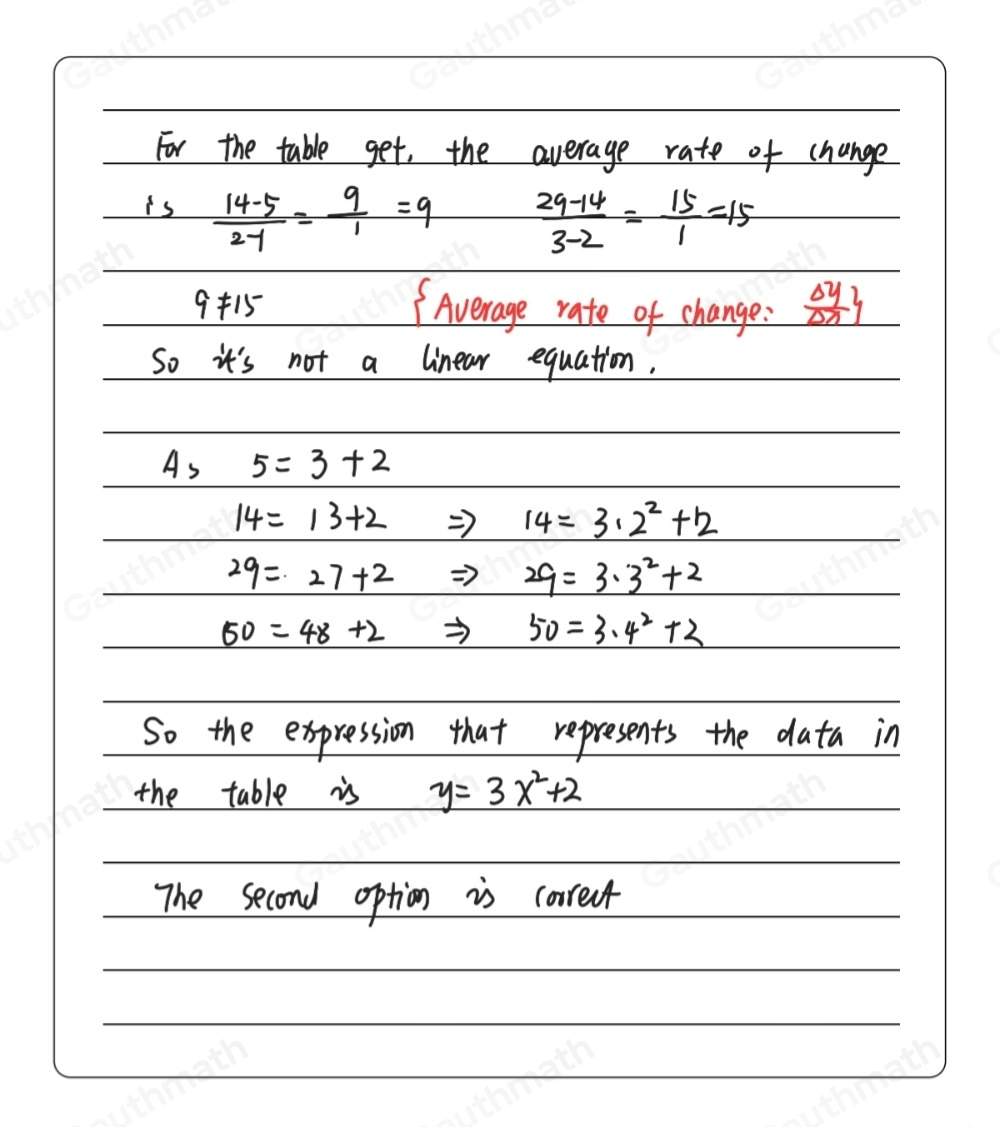 For the table get, the average rate of change
is 14-5/2-1 = 9/1 = 9 29-14/3-2 = 15/1 = 15
9 ≠ 15 {Average rate of change: Δy/Δx}
So it's not a linear equation.
As 5 = 3 + 2
14 = 13+2 ⇒ 14 = 3·2² + 2
29 = 27+2 ⇒ 29 = 3·3² + 2
50 = 48 + 2 ⇒ 50 = 3·4² + 2
So the expression that represents the data in
the table is y = 3x²+2
The second option is correct
Gauthmath